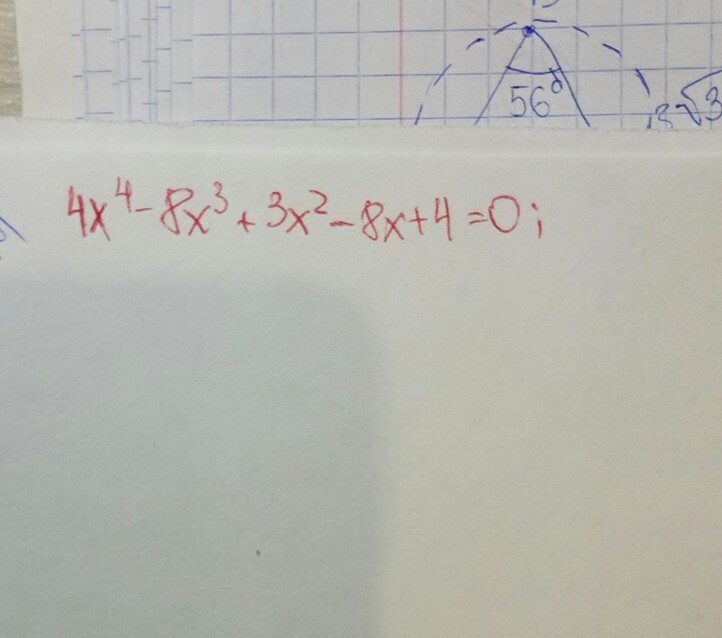 56°
√3
4x⁴-8x³+3x²-8x+4=0;